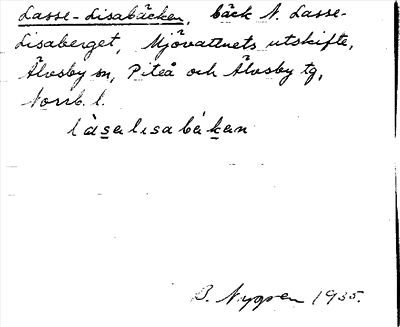 Lasse-Lisabäcken, bäck N. Lasse-
Lisaberget, Mjövattnets utskifte,
Älvsby sn, Piteå och Älvsby tg,
Norrb. l.
làsalisabákan
B. Nygren 1935.